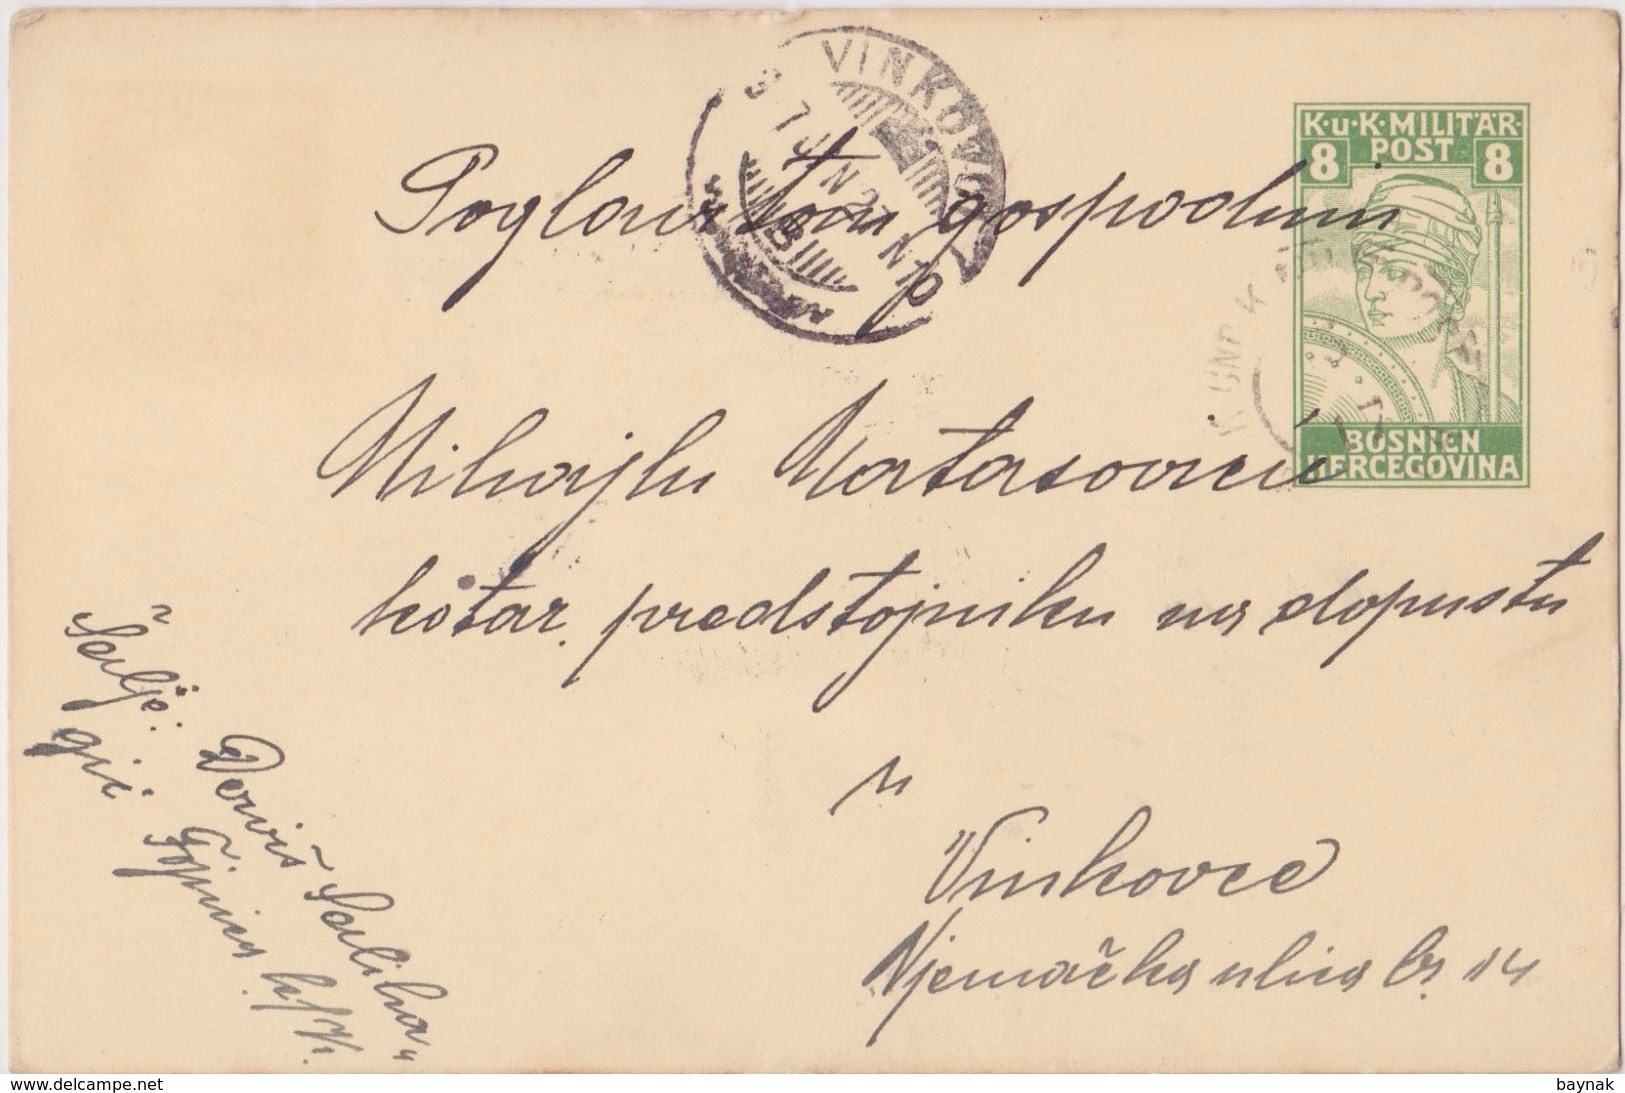 VINKOVCI
K·u·K·MILITÄR-
POST
8 8
BOSNIEN
HERCEGOVINA
Poglavitom gospodinu
Mihajlu Matasoviću
kotar. predstojniku na dopustu
u
Vinkovce
Njemačka ulica br 14
Šalje: Derviš Saliha„
gić Fojnica
delcampe.net
baynak